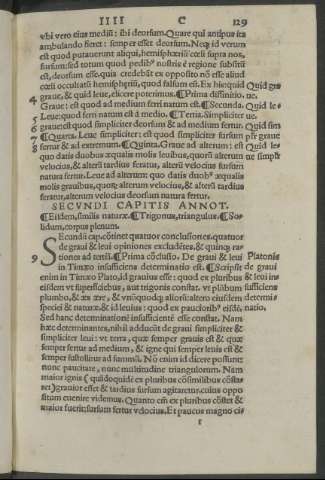 IIII C 129
vbi vero eius mediū: ibi deorsum. Quare qui antipus ita
ambulando fieret: semper esset deorsum. Neq; id verum
est quod putauerunt aliqui, hemisphæriū cœli supra nos,
sursum: sed totum quod pedibꝰ nostris è regione subsistit
est, deorsum esse. quia credebāt ex opposito nō esse aliud
cœli occultati hemisphæriū, quod falsum est. Ex hic quid Quid gra
4 graue, & quid leue, elicere poterimus. ¶Prima diffinitio. ue.
Graue: est quod ad medium ferri natum est. ¶Secunda. Quid le-
5 Leue: quod ferri natum est à medio. ¶Tertia. Simpliciter ue.
6 graue: est quod simpliciter deorsum & ad medium fertur. Quid sim
7 ¶Quarta. Leue simpliciter: est quod simpliciter sursum plr graue
8 fertur & ad extremum. ¶Quinta. Graue ad alterum: est Quid le-
quo datis duobus æqualis molis leuibus, quorū alterum ue simplr
velocius, & alterū tardius feratur, alterū velocius sursum
natura fertur. Leue ad alterum: quo datis duobꝰ æqualis
molis grauibus, quoꝝ alterum velocius, & alterū tardius
feratur, alterum velocius deorsum natura fertur.
SECVNDI CAPITIS ANNOT.
¶Eiusdem, similis naturæ. ¶Trigonus, triangulus. ¶So-
lidum, corpus plenum.
Secundū cap. cōtinet quatuor conclusiones. quatuor
de graui & leui opiniones excludētes, & quinq; ra-
9 tiones ad tertiā. ¶Prima cōclusio. De graui & leui Platonis
in Timæo insufficiens determinatio est. ¶Scripsit de graui
enim in Timæo Plato, id grauius esse: quod ex pluribus & leui in-
eisdem vt superficiebus, aut trigonis constat. vt plūbum sufficiens
plumbo, & æs ære, & vnūquodq; aliorū altero eiusdem determi-
speciei & naturæ. & id leuius: quod ex paucioribꝰ eisdē. natio.
Sed hanc determinationē insufficientē esse constat. Nam
hæc determinantes, nihil adducūt de graui simpliciter &
simpliciter leui: vt terra, quæ semper grauis est & quæ
semper fertur ad medium, & igne qui semper leuis est &
semper sustollitur ad summū. Nō enim id dicere possunt:
nunc paucitate, nunc multitudine triangulorum. Nam
maior ignis (quādoquidē ex pluribus cōsimilibus cōsta-
ret) grauior esset & tardius sursum agitaretur. cuius oppo
situm euenire videmus. Quanto em̄ ex pluribus cōstet &
maior fuerit: sursum fertur vdocius. Et paucus magno ci-
r